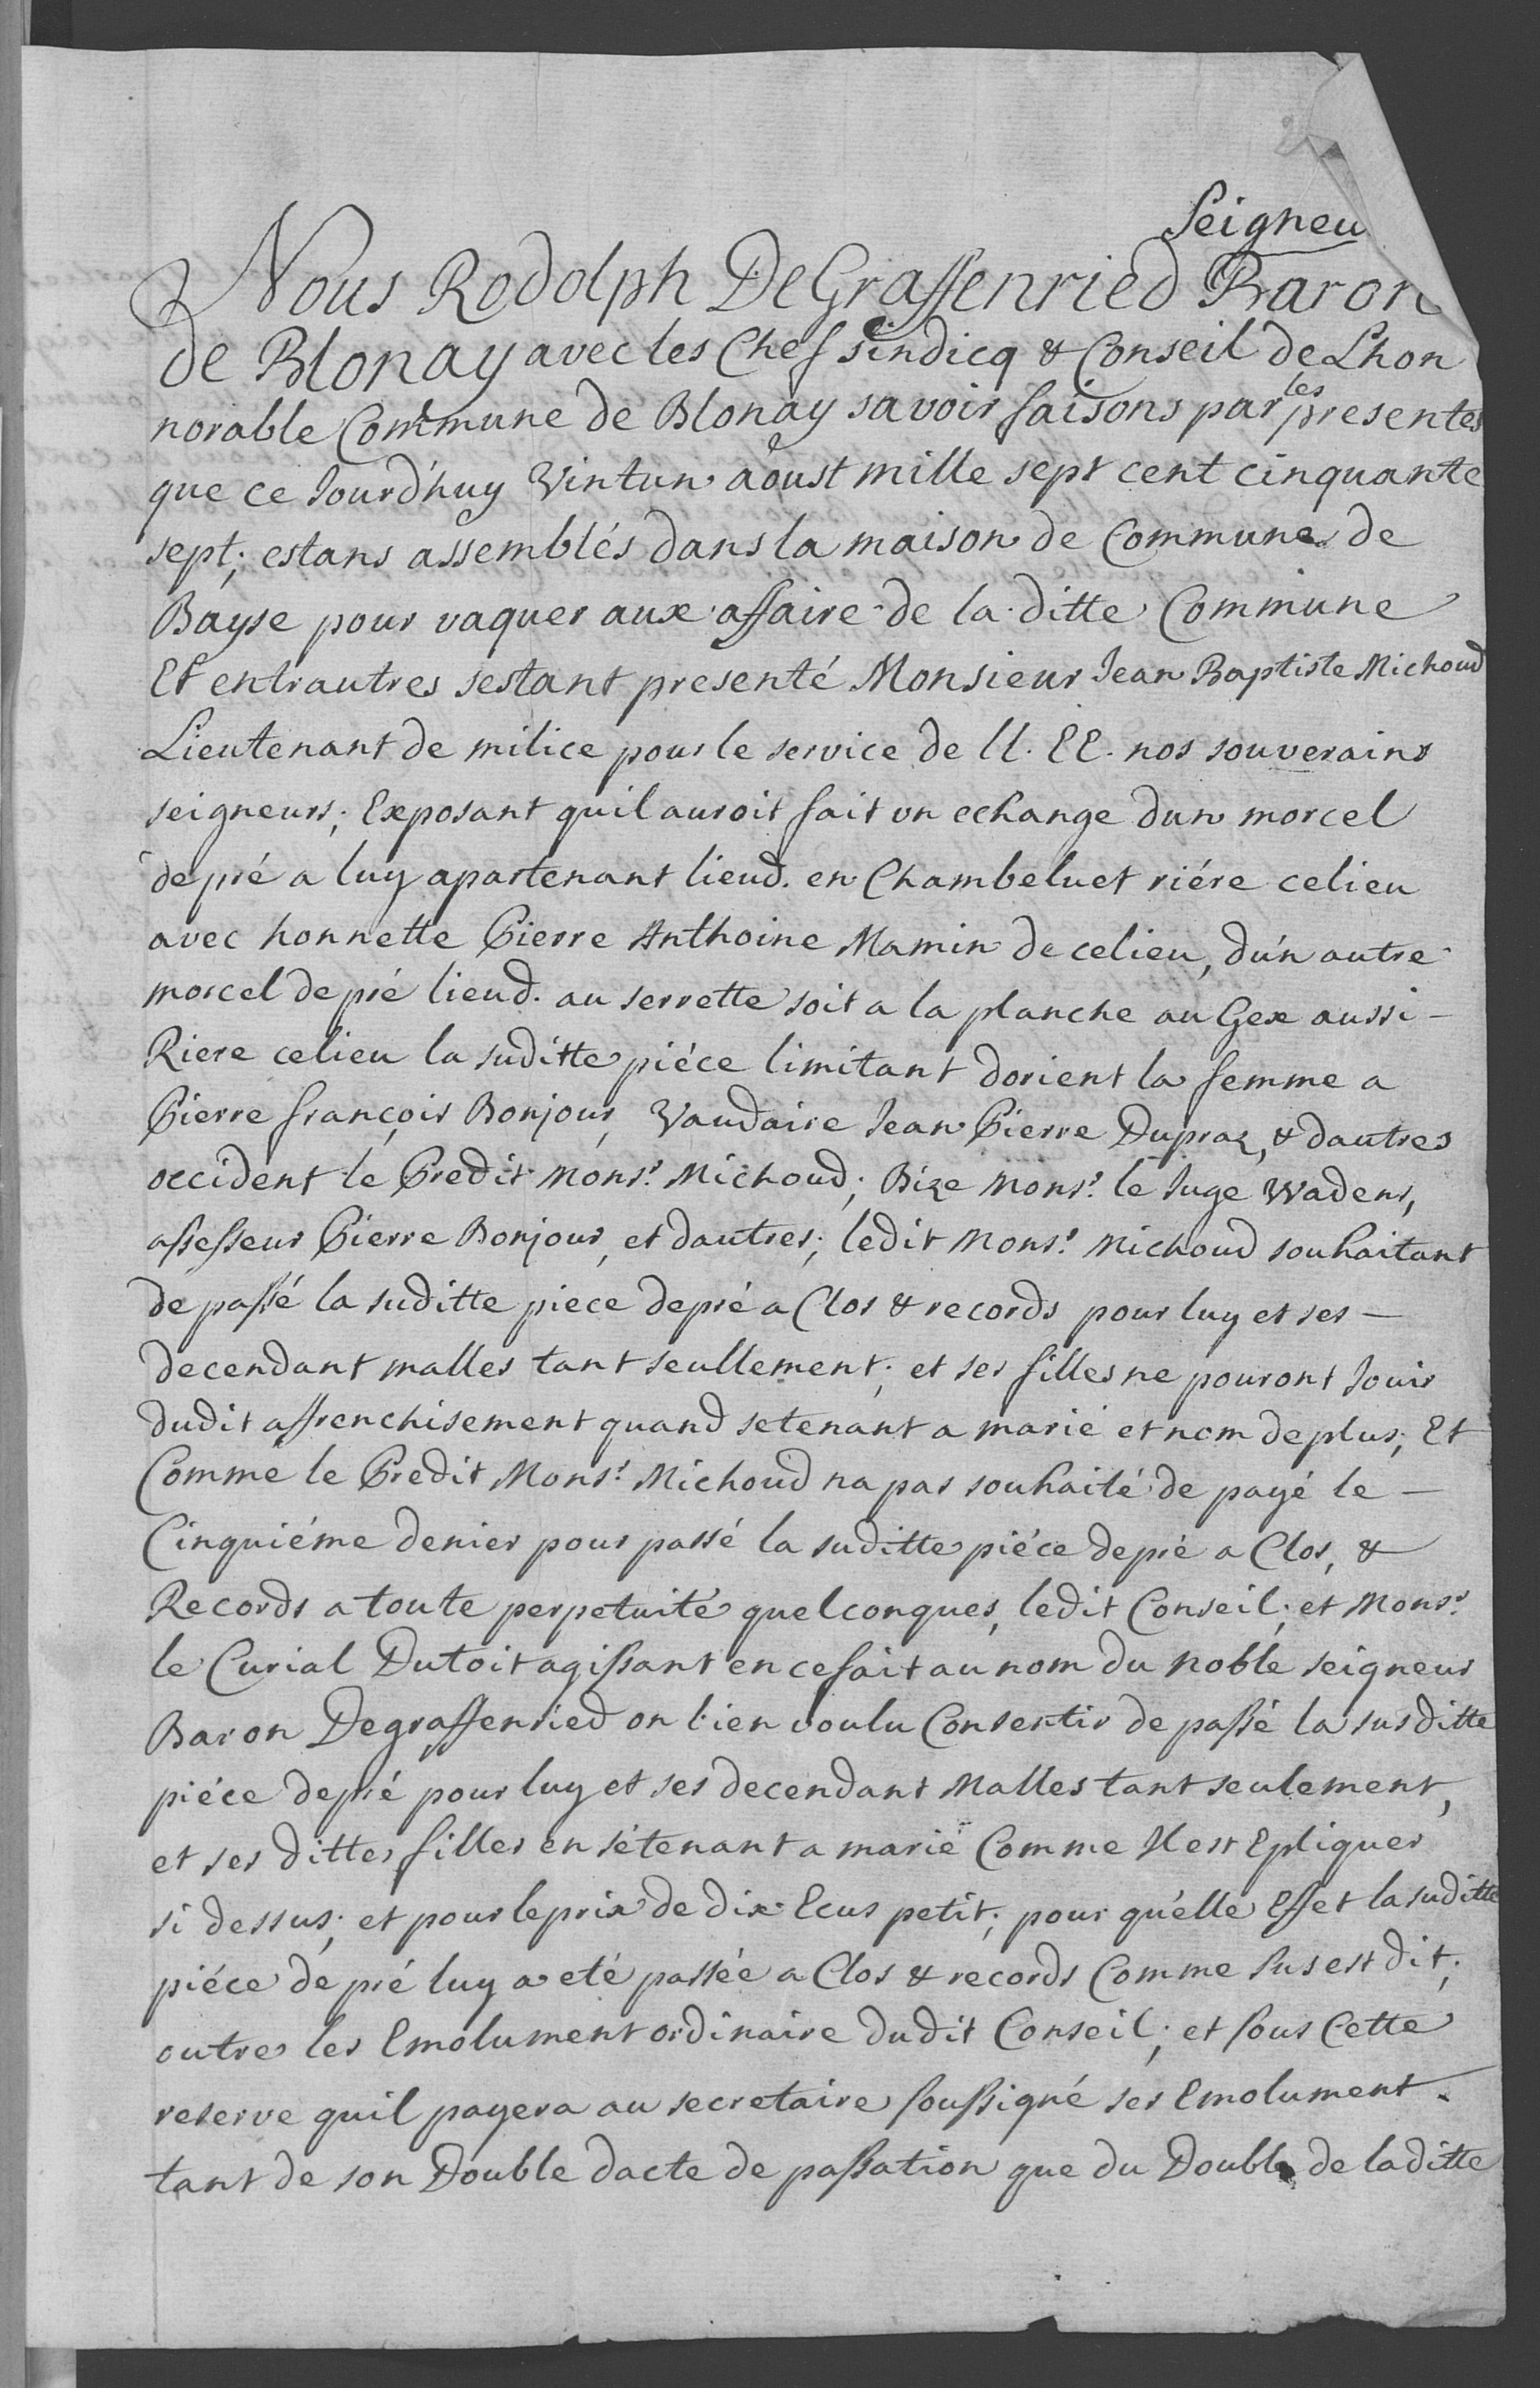 Seigneu
Nous Rodolph DeGraffenried Baron
de Blonay avec les Chef sindicq & Conseil de Lhon
norable Commune de Blonay savoir faisons par les presentes
que ce Jourd'huy Vintun aoust mille sept cent cinquante
sept; estans assemblés dans la maison de Commune de
Bayse pour vaquer aux affaire de la ditte Commune
Et entrautres sestant presenté Monsieur Jean Baptiste Michoud
Lieutenant de milice pour le service de LL. EE. nos souverains
seigneurs; Exposant quil auroit fait un echange dun morcel
de pré a luy apartenant lieud. en Chambeluet riére celieu
avec honnette Pierre Anthoine Mamin de celieu, du'n autre
morcel de pré lieud. au serrette soit a la planche au Gex aussi -
Riere celieu la suditte piéce limitant dorient la femme a
Pierre françois Bonjour, Vaudaire Jean Pierre Dupraz, & dautres
occident le Predit Monsr. Michoud; Bize Monsr. le Juge Wadens,
assesseur Pierre Bonjour, et dautres; ledit Monsr. Michoud souhaitant
de passé la suditte piece depré a Clos & records pour luy et ses -
decendant malles tant seullement; et ses filles ne pouront Jouir
dudit affrenchisement quand setenant a marié et nom de plus; Et
Comme le Predit Monsr. Michoud na pas souhaité de payé le -
Cinquiéme denier pour passé la suditte piéce depré a Clos, &
Records a toute perpetuité quelconques, ledit Conseil; et Monsr.
le Curial Dutoit agissant en ce fait au nom du Noble seigneur
Baron Degraffenried on bien voulu Consentir de passé la susditte
piéce depré pour luy et ses decendant Malles tant seulement,
et ses dittes filles en sétenant a marié Comme Il est Epliquer
si dessus; et pour le prix de dix Ecus petit; pour qu'elle Effet la suditte
piéce de pré luy a eté passée a Clos & records Comme sus est dit;
outre les Emolument ordinaire dudit Conseil; et sous Cette
reserve quil payera au secretaire soussigné ses Emolument.
tant de son Double dacte de passation que du Double de laditte